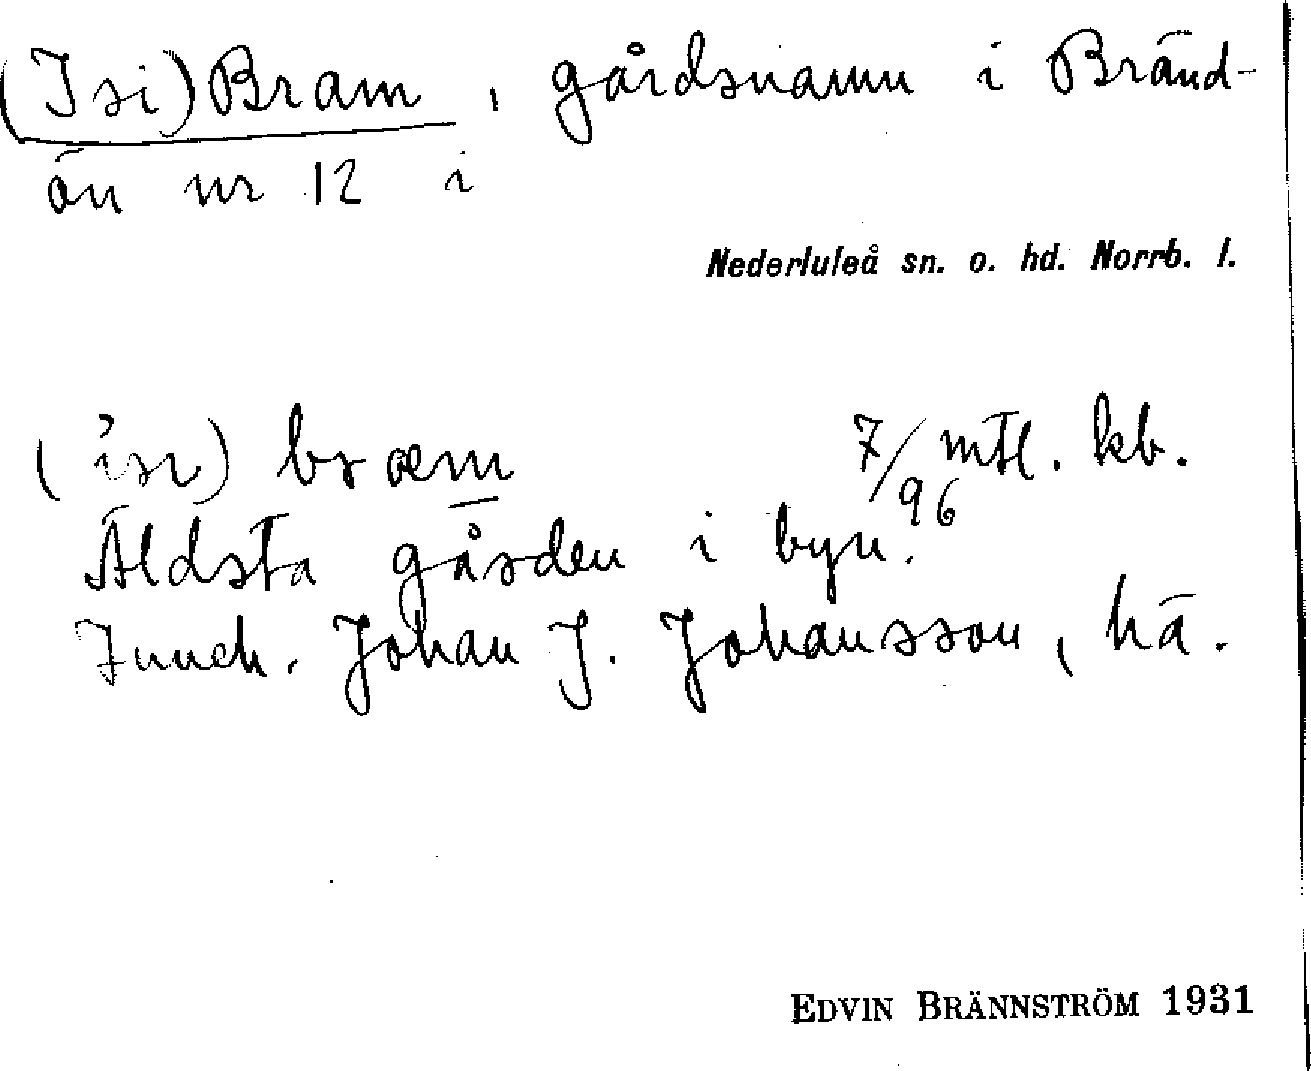 (Isi)Bram, gårdsnamn i Bränd-
ön nr 12 i
Nederluleå sn. o. hd. Norrb. l.
bræm 7/96 mtl. kb.
Äldsta gården i byn.
Inneh. Johan J. Johansson, hä.
EDVIN BRÄNNSTRÖM 1931